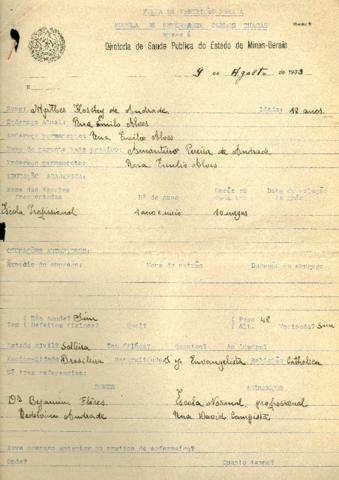 FICHA DE
ESCOLA DE ENFERMAGEM CARLOS CHAGAS
Diretoria de Saude Publica do Estado de Minas-Gerais
9 de Agosto de 1933
Nome: de Andrade Idade: 18 anos
Endereço atual: Rua Emilio Alves
Endereço permanente: Rua Emilio Alves
Nome do parente mais proximo: Amantino Pereira de Andrade
Endereço permanente: Rua Emilio Alves
EDUCAÇÃO ACADEMICA:
Nome das Escolas frequentadas Nº de anos
Escola Profissional 1 ano e meio 10 mezes
OCUPAÇÕES ANTERIORES:
Especie do emprego: Nome do patrão Duração do emprego
Boa saude? Sim Peso 48
Tem Defeitos fisicos? Qual? Alt. Vacinada? Sim
Estado civil? Solteira Tem filhos? Quantos? Ao Coradal
Nacionalidade Brasileira Naturalidade S. J. Evangelista Religião Catholica
Dê tres referencias:
NOMES ENDEREÇOS
Dr Benjamin Flores Escola Normal profissional
Andrade Rua David Campista
Teve preparo anterior ou pratica de enfermeira?
Onde? Quanto tempo?